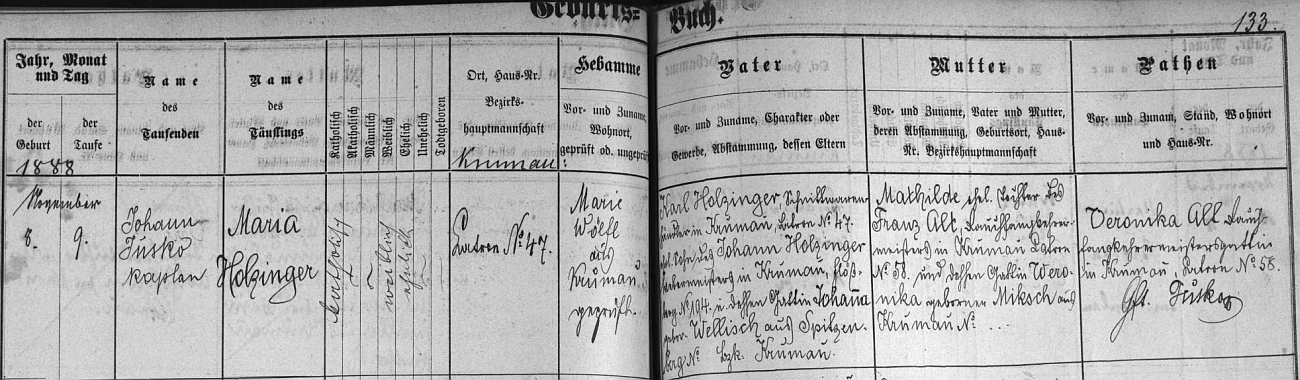 Geburts-Buch.
133.
Jahr, Monat und Tag
der Geburt
der Taufe
1888
Name des Taufenden
Name des Täuflings
Katholisch
Akatholisch
Männlich
Weiblich
Ehelich
Unehelich
Todtgeboren
Ort, Haus-Nr.
Bezirks-
hauptmannschaft
Krumau
Hebamme
Vor- und Zuname,
Wohnort,
geprüft od. ungeprüft
Vater
Vor- und Zuname, Charakter oder
Gewerbe, Abstammung, dessen Eltern
Mutter
Vor- und Zuname, Vater und Mutter,
deren Abstammung, Geburtsort, Haus-
Nr. Bezirkshauptmannschaft
Pathen
Vor- und Zunan, Stand, Wohnort
und Haus-Nr.
November
8. 9.
Johann
Jusko
Kaplan
Maria
Holzinger
katholisch
weiblich
ehelich
Latron № 47.
Marie
Wöltl
aus
Krumau
geprüft.
Karl Holzinger, Schnittwaren-
händler in Krumau, Latron № 47.
ehl. Sohn des Johann Holzinger
in Krumau, Flöß-
berg № 194. u. dessen Gattin Johana
gebor. Wellisch aus Spitzen-
berg № bzk. Krumau.
Mathilde, ehl. Tochter des
Franz Alt, Rauchfangkehrer-
meisters in Krumau Latron
№ 58. und dessen Gattin Wero-
nika geborner Miksch aus
Krumau № ...
Veronika Alt Rauch-
fangkehrermeistersgattin
in Krumau, Latron № 58.
Jusko